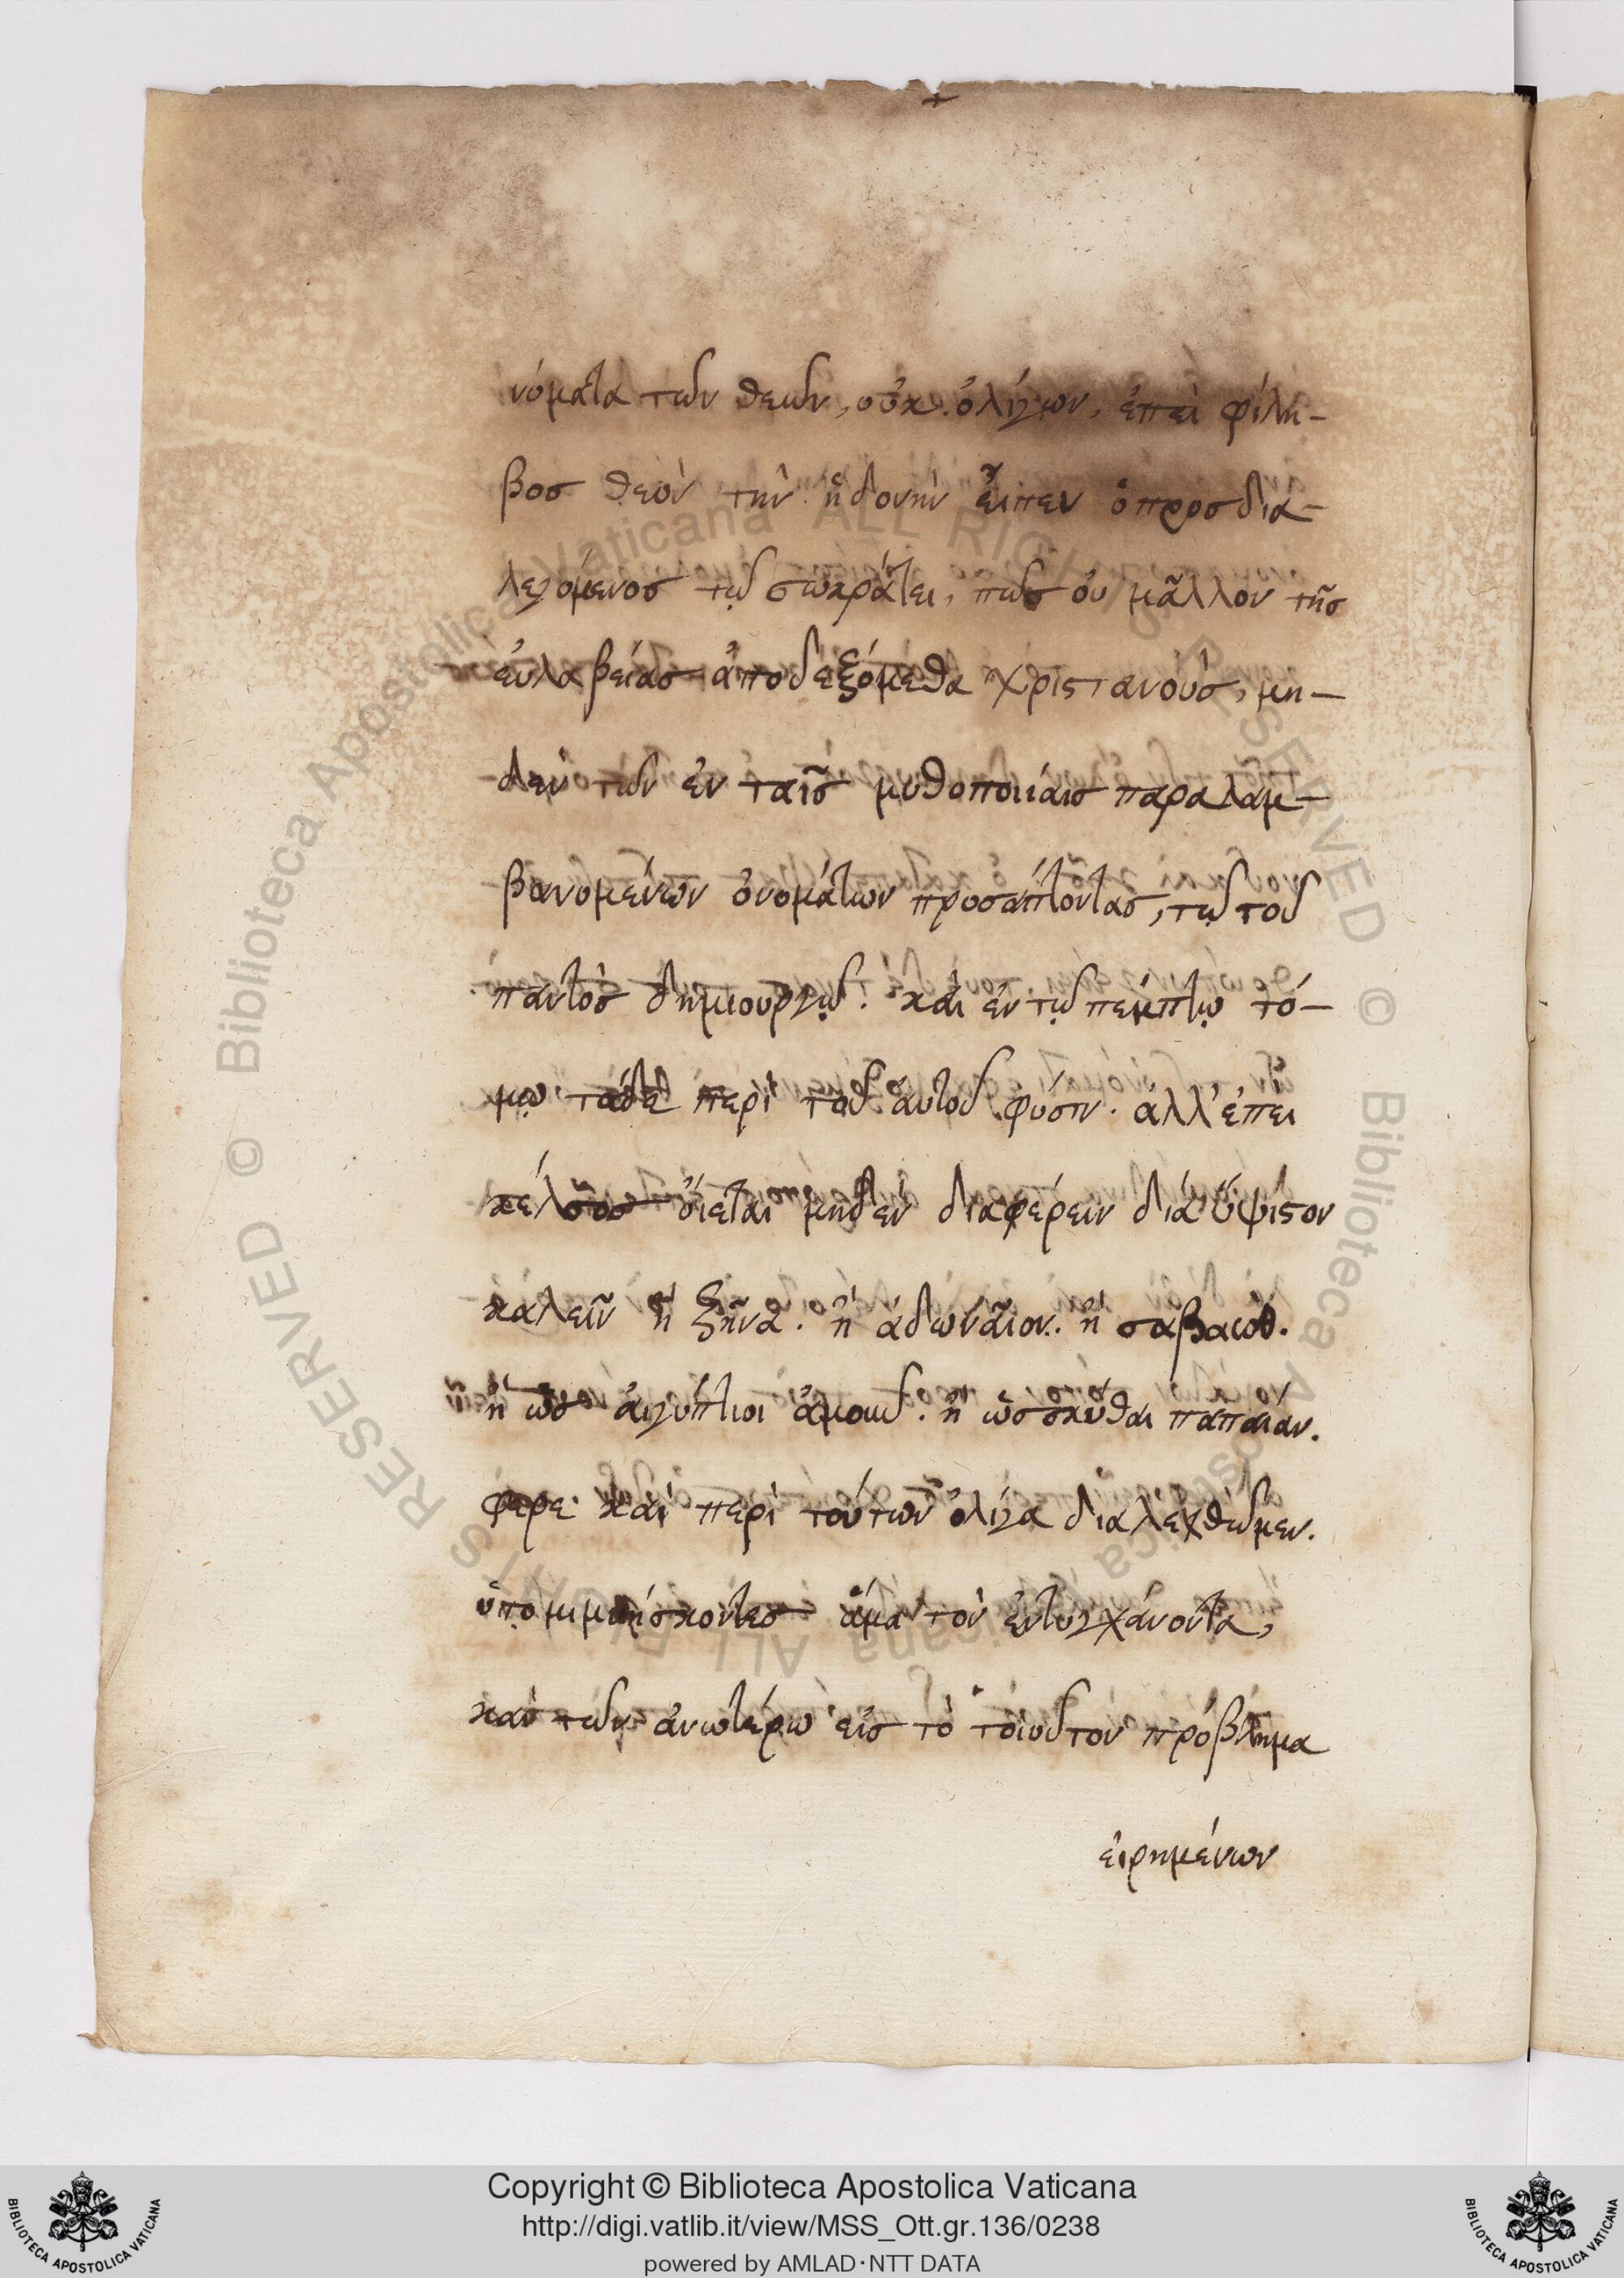 νόματα τῶν θεῶν, οὐκ ὀλίγων, ἐπεὶ φίλη-
βος θεὸν τὴν ἡδονὴν εἶπεν ὁ προσδια-
λεγόμενος τῷ σωκράτει, πῶς οὐ μᾶλλον τῆς
εὐλαβείας ἀποδεξόμεθα χριστανοὺς, μη-
δὲν τῶν ἐν ταῖς μυθοποιΐαις παραλαμ-
βανομένων ὀνομάτων προσάπτοντας, τῷ τοῦ
παντὸς δημιουργῷ. καὶ ἐν τῷ πέμπτῳ τό-
μῳ τάδε περὶ τοῦ αὐτοῦ φύσιν. ἀλλ' ἐπεὶ
κέλσος οἴεται μηδὲν διαφέρειν δία ὕψιστον
καλεῖν ἢ ζῆνα. ἢ ἀδωναῖον. ἢ σαβαώθ.
ἢ ὡς αἰγύπτιοι ἀμοῦν. ἢ ὡς σκύθαι παπαιάν.
φέρε καὶ περὶ τούτων ὀλίγα διαλεχθῶμεν.
ὑπομιμνήσκοντες ἅμα τὸν ἐντυγχάνοντα,
καὶ τῶν ἀνωτέρω εἰς τὸ τοιοῦτον πρόβλημα
εἰρημένων
Copyright © Biblioteca Apostolica Vaticana
http://digi.vatlib.it/view/MSS_Ott.gr.136/0238
powered by AMLAD·NTT DATA
BIBLIOTECA APOSTOLICA VATICANA
BIBLIOTECA APOSTOLICA VATICANA
© Biblioteca Apostolica Vaticana ALL RIGHTS RESERVED
© Biblioteca Apostolica Vaticana ALL RIGHTS RESERVED